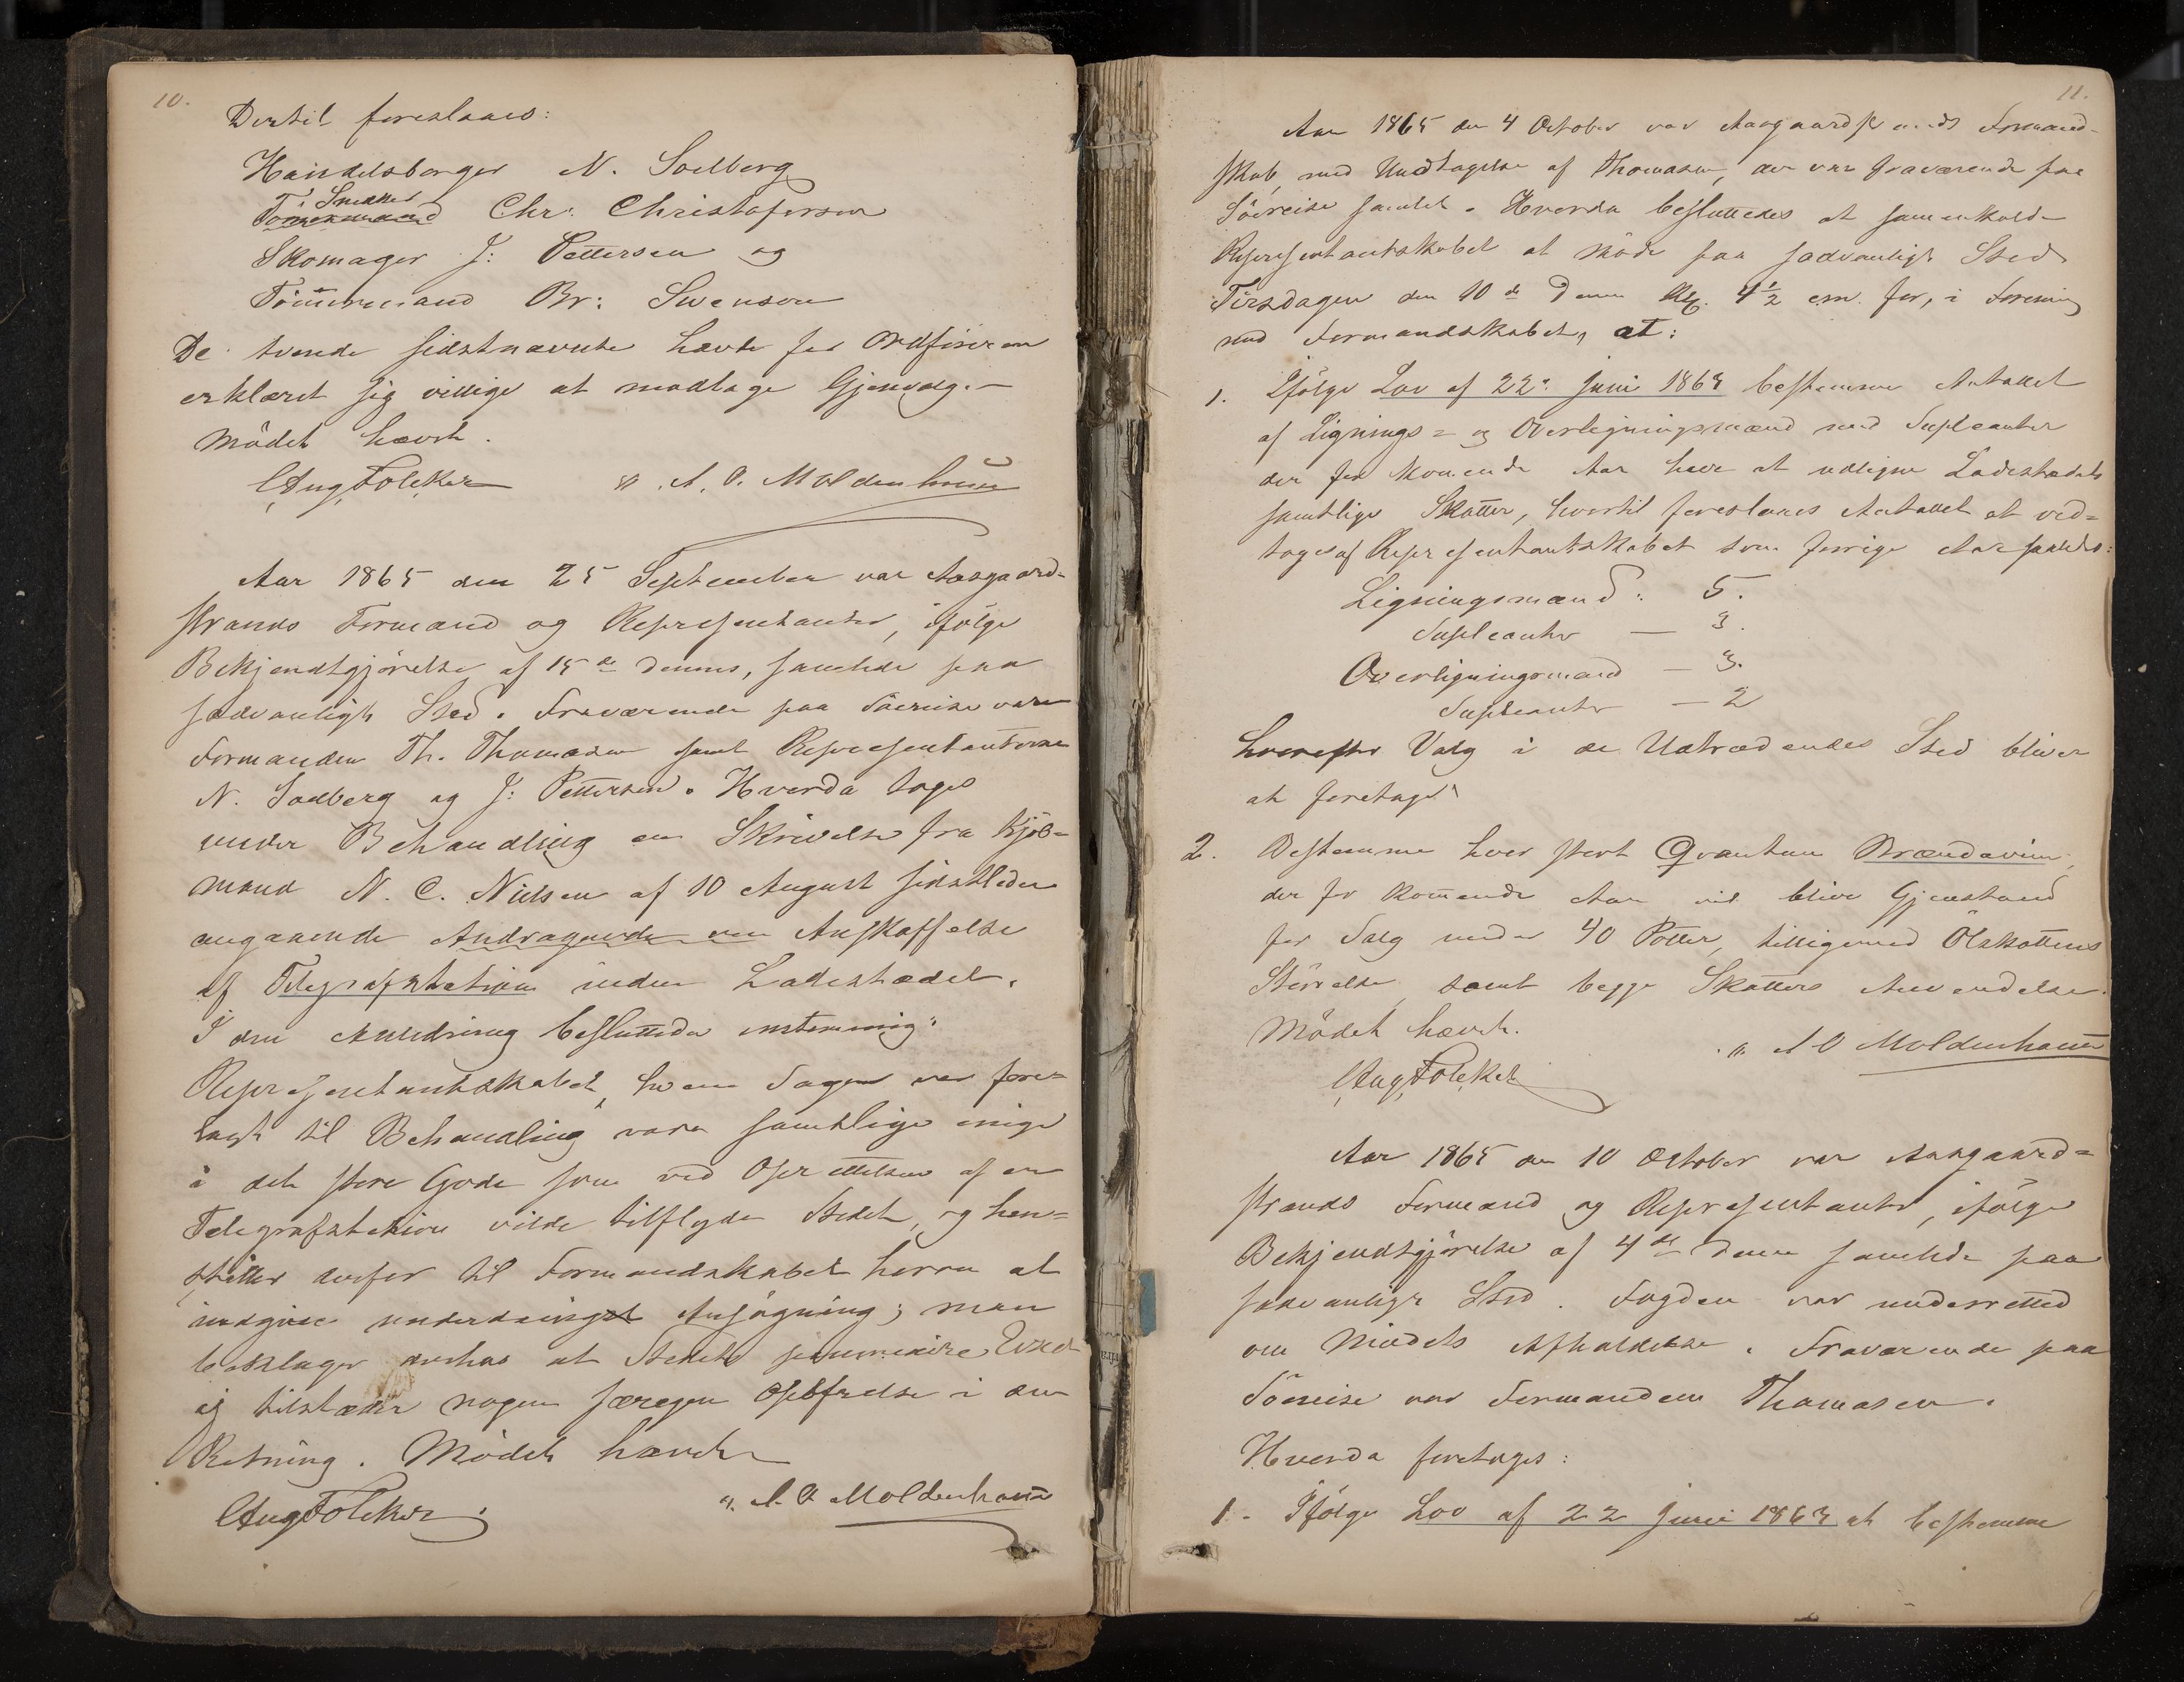 10.
Dertil foreslaaes:
Handelsborger N. Solberg
Snedker
Tömermand Chr: Christofersen
Skomager J: Pettersen og
Tömmermand Br: Swenson
De tvende sidstnævnte havde for Ordföreren
erklæret sig villige at modtage Gjenvalg.—
Mödet hævet.
Aug Folcker A. O. Moldenhauer
Aar 1865 den 25 September var Aasgaard-
strands Formænd og Representanter, ifölge
Bekjendtgjörelse af 15de dennes, samlede paa
sædvanligt Sted. Fraværende paa Söereise vare
Formanden Th. Thomasen samt Representanterne
N. Solberg og J: Pettersen. Hvorda toges
under Behandling en Skrivelse fra Kjöb-
mand N. C. Nielsen af 10 August sidstleden
angaaende Andragende om Anskaffelse
af Telegrafstation inden Ladestædet.
I den Anledning besluttede enstemmig:
Representantskabet, hvem Sagen var fore-
lagt til Behandling vare samtlige enige
i det store Gode som ved Oprettelsen af en
Telegrafstation vilde tilflyde Stedet, og hen-
stiller derfor til Formandskabet herom at
indgive underdanigst Ansögning; man
beklager derhos at Stedets pecuniaire Evne
ej tilstæder nogen særegen Opofrelse i den
Retning. Mödet hævet
Aug Folcker. A. O Moldenhauer
11.
Aar 1865 den 4 October var Aasgaardstrands Formand-
skab, med Undtagelse af Thomasen, der var fraværende paa
Söereise samlet. Hvorda besluttedes at sammenkalde
Representantskabet at möde paa sædvanligt Sted
Tirsdagen den 10de Dennes Kl. 4½ e.m. for, i Forening
med Formandskabet, at:
1. Ifölge Lov af 22. Juni 1863 bestemme Antallet
af Lignings- og Overligningsmænd med Supleanter
der for kommende Aar have at udligne Ladestædets
samtlige Skatter, hvortil foreslaaes Antallet at ved-
tages af Representantskabet som forrige Aar saalede:
Ligningsmænd: 5.
Supleanter — 3.
Overligningsmænd — 3.
Supleanter — 2
hvorefter Valg i de Udtrædendes Sted bliver
at foretage.
2. Bestemme hvor stort Qvantum Brændeviin,
der for kommende Aar vil blive Gjenstand
for Salg under 40 Potter, tilligemed Ölskattens
Störrelse, samt begge Skatters Anvendelse.
Mödet hævet.
A O Moldenhauer
Aug Folcker
Aar 1865 den 10 October var Aasgaard-
strands Formænd og Representanter, ifölge
Bekjendtgjörelse af 4de Dennes samlede paa
sædvanligt Sted. Fogden var underrettet
om Mödets Afholdelse. Fraværende paa
Söereise var Formanden Thomasen.
Hvorda foretoges:
1. Ifölge Lov af 22 Juni 1863 at bestemme